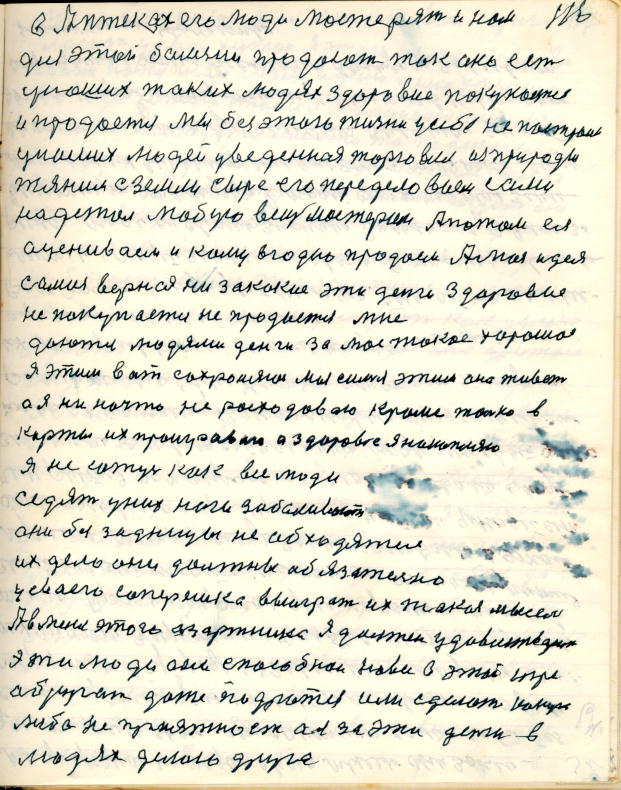 в Аптеках его люди мастерят и нам 116
для этой болезни продают так оно ест
у наших таких людях здоровие покупаетя
и продается Мы без этого жизни у себе не построили
у наших людей уведенная торговля из природы
тяним с земли сыре его переделоваем сами
на детал любую вещ мастерим Апотом ея
оцениваем и кому вгодно продаем А моя идея
самая верная ни за какие эти денги здоровие
не покупается не продается мне
даются людями денги за мое такое хорошое
я этим вот сохраняюс моя сила этим она живет
а я ни начто не росходоваю кроме толко в
карты их проигроваю а здоровие я накопляю
Я не сижу как все люди
седят у них ноги заболивают
они без задницы не обходятся
их дело они должны обязателно
у своего соперника выиграт их такая мысел
А в мене этого азартника Я должен удовлетворит
эти люди они способной нови в этой игре
обругат даже подратся или сделат какую
либо не приятност а за эти денги в
людях делаю друга